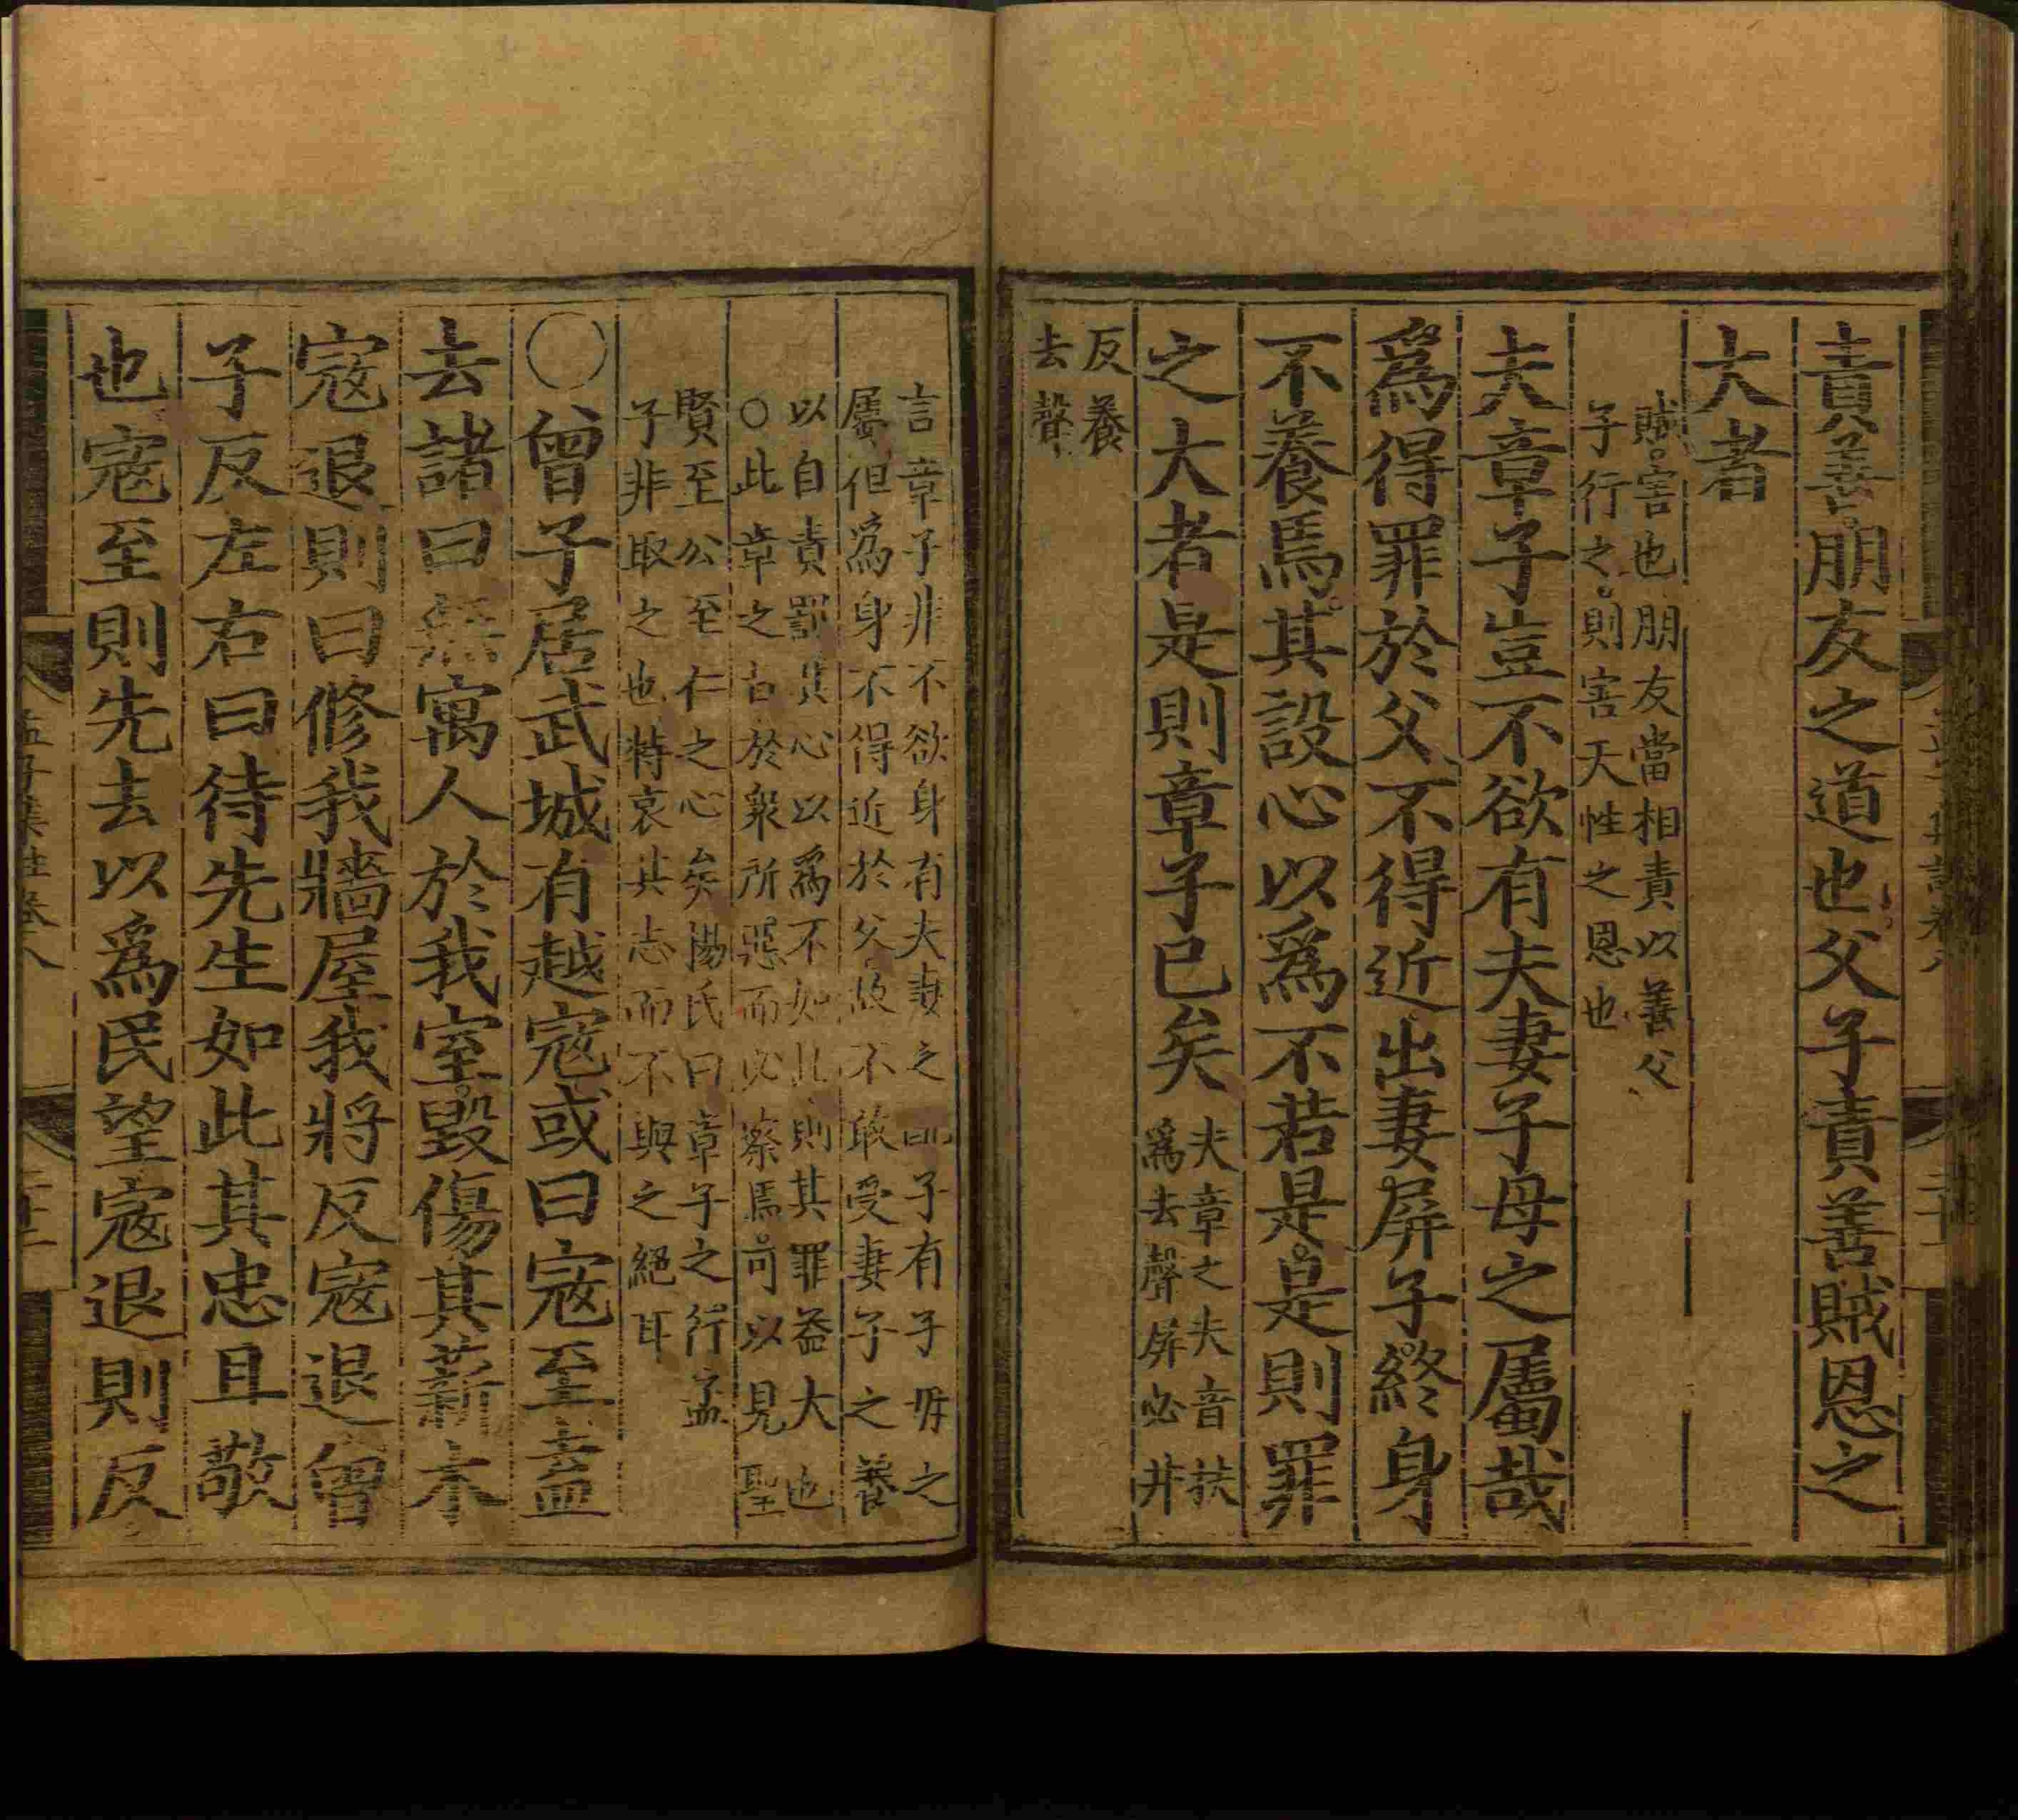 責善朋友之道也父子責善賊恩之
大者
賊害也朋友當相責以善父
子行之則害天性之恩也
夫章子豈不欲有夫妻子母之屬哉
爲得罪於父不得近出妻屏子終身
不養焉其設心以爲不若是是則罪
之大者是則章子已矣
夫章之夫音扶
爲去聲屏必井
反養
去聲
言章子非不欲身有夫妻之配子有子母之
屬但爲身不得近於父故不敢受妻子之養
以自責罰其心以爲不如此則其罪益大也
○此章之旨於衆所惡而必察焉可以見聖
賢至公至仁之心矣楊氏曰章子之行孟
子非取之也特哀其志而不與之絕耳
○曾子居武城有越寇或曰寇至盍
去諸曰無寓人於我室毀傷其薪木
寇退則曰修我牆屋我將反寇退曾
子反左右曰待先生如此其忠且敬
也寇至則先去以爲民望寇退則反
孟子集註卷八